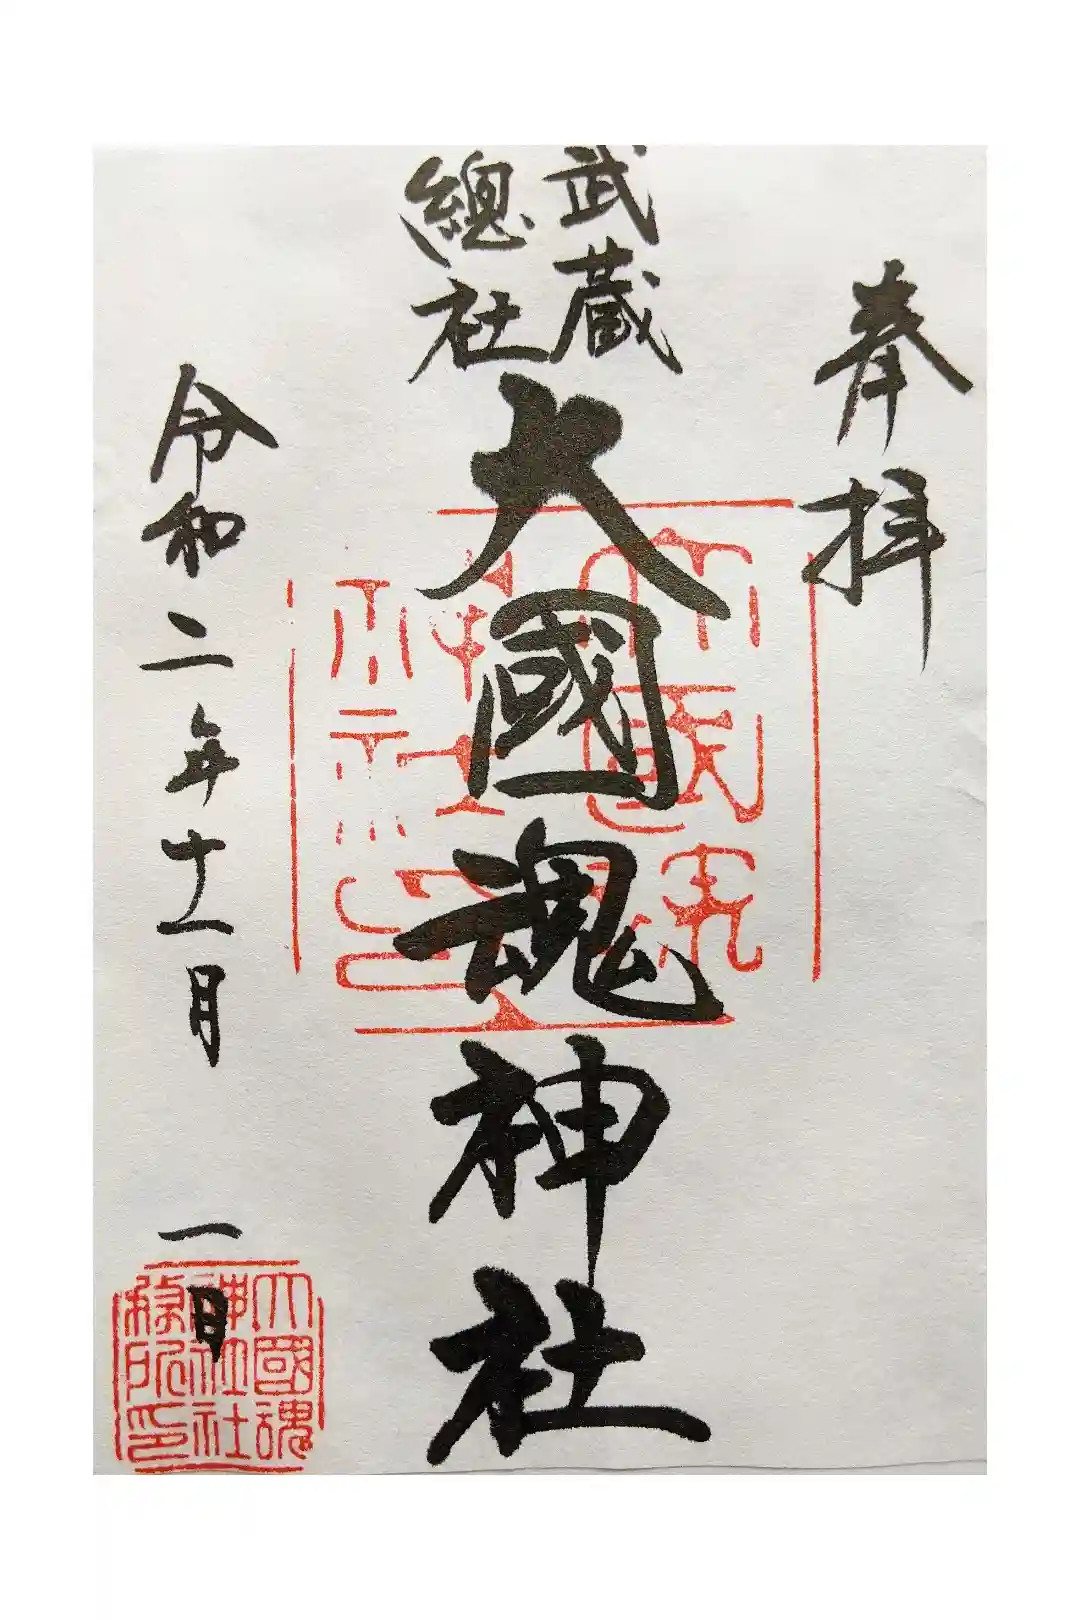 奉拝
武蔵
總社
大國魂神社
令和二年十一月一日
大國魂
神社社
務所印